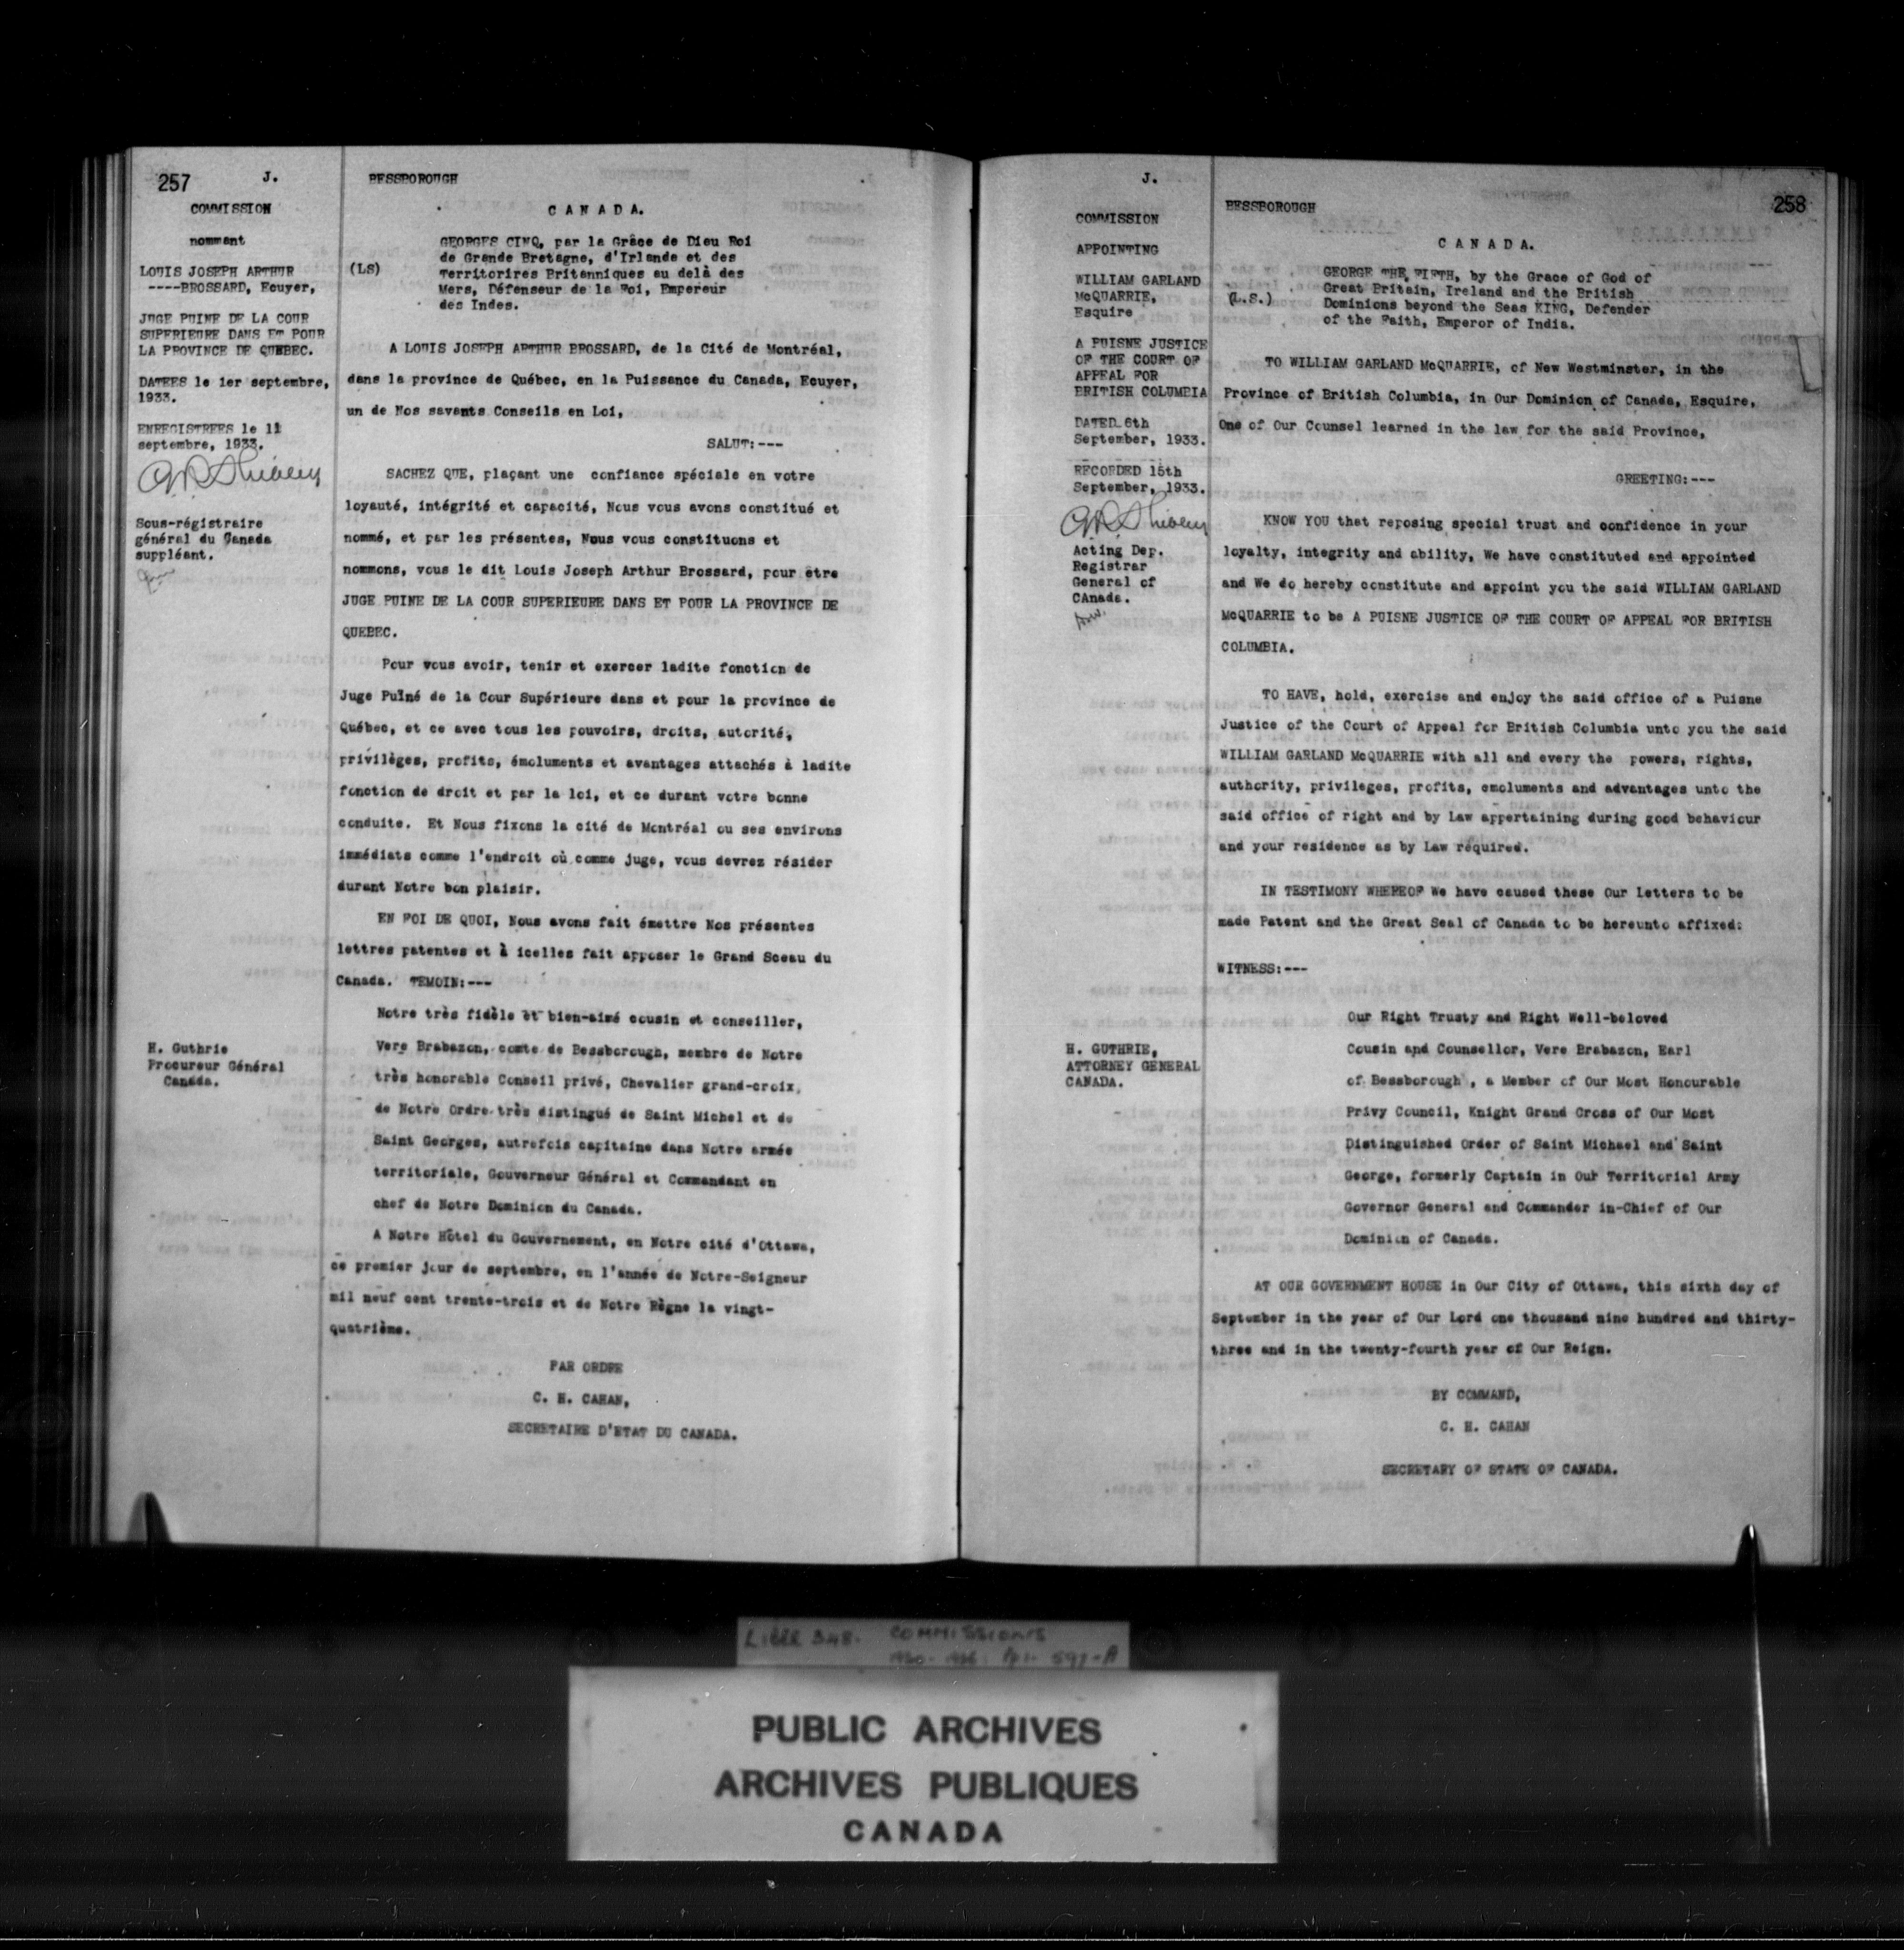 257
J.
COMMISSION
nommant
LOUIS JOSEPH ARTHUR
----BROSSARD, Ecuyer,
JUGE PUINE DE LA COUR
SUPERIEURE DANS ET POUR
LA PROVINCE DE QUEBEC.
DATEES le 1er septembre,
1933.
ENREGISTREES le 11
septembre, 1933.
Sous-régistraire
général du Canada
suppléant.
H. Guthrie
Procureur Général
Canada.
BESSBOROUGH
CANADA.
(LS)
GEORGES CINQ, par la Grâce de Dieu Roi
de Grande Bretagne, d'Irlande et des
Territorires Britanniques au delà des
Mers, Défenseur de la Foi, Empereur
des Indes.
A LOUIS JOSEPH ARTHUR BROSSARD, de la Cité de Montréal,
dans la province de Québec, en la Puissance du Canada, Ecuyer,
un de Nos savants Conseils en Loi,
SALUT:---
SACHEZ QUE, plaçant une confiance spéciale en votre
loyauté, intégrité et capacité, Nous vous avons constitué et
nommé, et par les présentes, Nous vous constituons et
nommons, vous le dit Louis Joseph Arthur Brossard, pour être
JUGE PUINE DE LA COUR SUPERIEURE DANS ET POUR LA PROVINCE DE
QUEBEC.
Pour vous avoir, tenir et exercer ladite fonction de
Juge Puîné de la Cour Supérieure dans et pour la province de
Québec, et ce avec tous les pouvoirs, droits, autorité,
privilèges, profits, émoluments et avantages attachés à ladite
fonction de droit et par la loi, et ce durant votre bonne
conduite. Et Nous fixons la cité de Montréal ou ses environs
immédiats comme l'endroit où comme juge, vous devrez résider
durant Notre bon plaisir.
EN FOI DE QUOI, Nous avons fait émettre Nos présentes
lettres patentes et à icelles fait apposer le Grand Sceau du
Canada. TEMOIN:---
Notre très fidèle et bien-aimé cousin et conseiller,
Vere Brabazon, comte de Bessborough, membre de Notre
très honorable Conseil privé, Chevalier grand-croix,
de Notre Ordre très distingué de Saint Michel et de
Saint Georges, autrefois capitaine dans Notre armée
territoriale, Gouverneur Général et Commandant en
chef de Notre Dominion du Canada.
A Notre Hôtel du Gouvernement, en Notre cité d'Ottawa,
ce premier jour de septembre, en l'année de Notre-Seigneur
mil neuf cent trente-trois et de Notre Règne la vingt-
quatrième.
PAR ORDRE
C. H. CAHAN,
SECRETAIRE D'ETAT DU CANADA.
J.
COMMISSION
APPOINTING
WILLIAM GARLAND
McQUARRIE,
Esquire
A PUISNE JUSTICE
OF THE COURT OF
APPEAL FOR
BRITISH COLUMBIA
DATED 6th
September, 1933.
RECORDED 15th
September, 1933.
Acting Dep.
Registrar
General of
CAnada.
H. GUTHRIE,
ATTORNEY GENERAL
CANADA.
BESSBOROUGH
258
CANADA.
(L.S.)
GEORGE THE FIFTH, by the Grace of God of
Great Britain, Ireland and the British
Dominions beyond the Seas KING, Defender
of the Faith, Emperor of India.
TO WILLIAM GARLAND McQUARRIE, of New Westminster, in the
Province of British Columbia, in Our Dominion of Canada, Esquire,
One of Our Counsel learned in the law for the said Province,
GREETING:---
KNOW YOU that reposing special trust and confidence in your
loyalty, integrity and ability, We have constituted and appointed
and We do hereby constitute and appoint you the said WILLIAM GARLAND
McQUARRIE to be A PUISNE JUSTICE OF THE COURT OF APPEAL FOR BRITISH
COLUMBIA.
TO HAVE, hold, exercise and enjoy the said office of a Puisne
Justice of the Court of Appeal for British Columbia unto you the said
WILLIAM GARLAND McQUARRIE with all and every the powers, rights,
authority, privileges, profits, emoluments and advantages unto the
said office of right and by Law appertaining during good behaviour
and your residence as by Law required.
IN TESTIMONY WHEREOF We have caused these Our Letters to be
made Patent and the Great Seal of Canada to be hereunto affixed:
WITNESS:---
Our Right Trusty and Right Well-beloved
Cousin and Counsellor, Vere Brabazon, Earl
of Bessborough, a Member of Our Most Honourable
Privy Council, Knight Grand Cross of Our Most
Distinguished Order of Saint Michael and Saint
George, formerly Captain in Our Territorial Army
Governor General and Commander in-Chief of Our
Dominion of Canada.
AT OUR GOVERNMENT HOUSE in Our City of Ottawa, this sixth day of
September in the year of Our Lord one thousand nine hundred and thirty-
three and in the twenty-fourth year of Our Reign.
BY COMMAND,
C. H. CAHAN
SECRETARY OF STATE OF CANADA.
LIBER 348. COMMISSIONS
PUBLIC ARCHIVES
ARCHIVES PUBLIQUES
CANADA